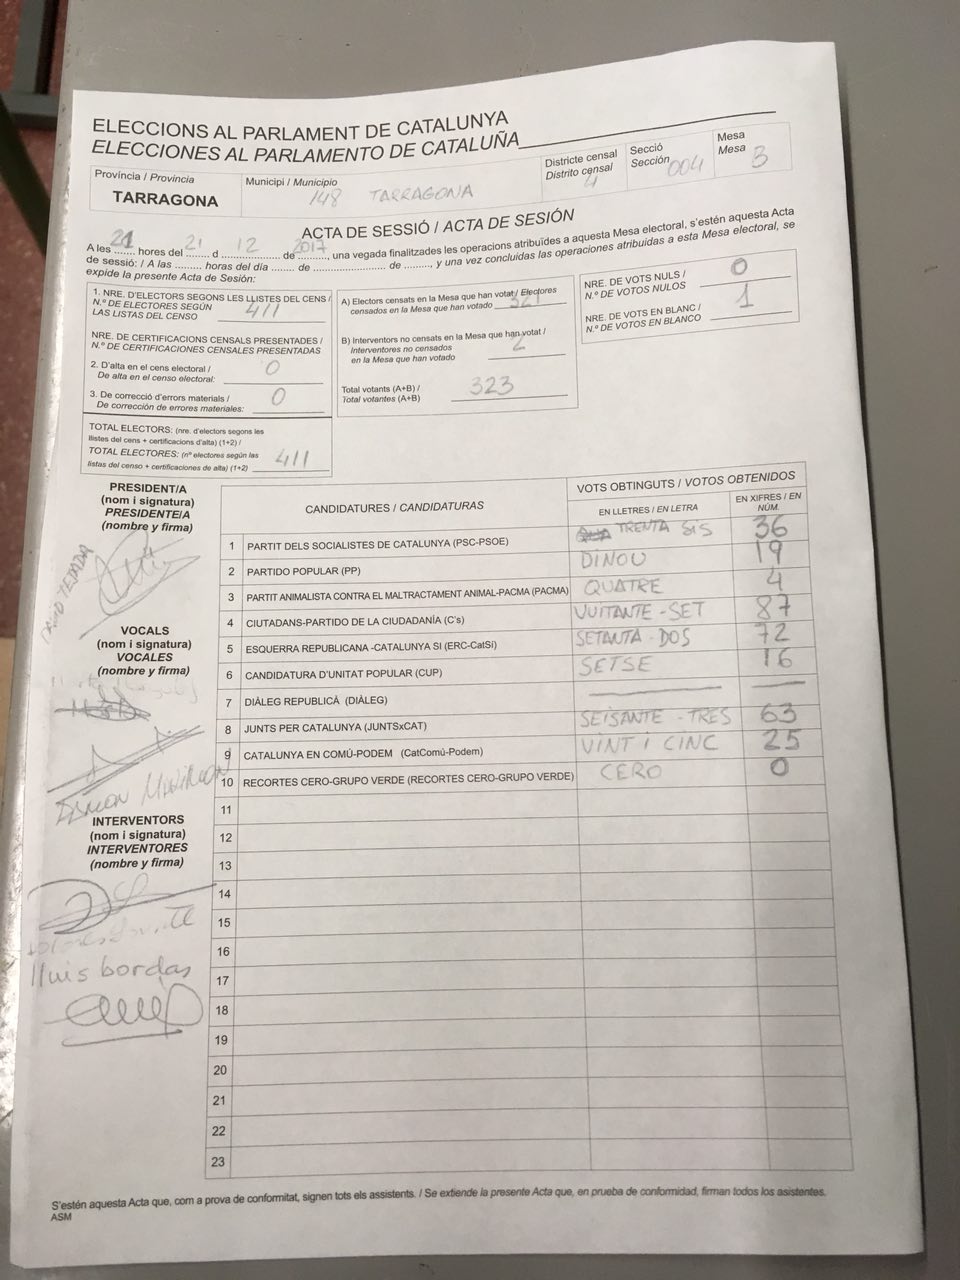 ELECCIONS AL PARLAMENT DE CATALUNYA
ELECCIONES AL PARLAMENTO DE CATALUÑA
Província / Provincia
TARRAGONA
Municipi / Municipio
148 TARRAGONA
Districte censal
Distrito censal
4
Secció
Sección
004
Mesa
Mesa
3
ACTA DE SESSIÓ / ACTA DE SESIÓN
A les 21 hores del 21 d 12 de 2017, una vegada finalitzades les operacions atribuïdes a aquesta Mesa electoral, s'estén aquesta Acta
de sessió: / A las ......... horas del día ....... de ........................ de ........, y una vez concluidas las operaciones atribuidas a esta Mesa electoral, se
expide la presente Acta de Sesión:
1. NRE. D'ELECTORS SEGONS LES LLISTES DEL CENS /
N.º DE ELECTORES SEGÚN
LAS LISTAS DEL CENSO 411
NRE. DE CERTIFICACIONS CENSALS PRESENTADES /
N.º DE CERTIFICACIONES CENSALES PRESENTADAS
2. D'alta en el cens electoral /
De alta en el censo electoral: 0
3. De correcció d'errors materials /
De corrección de errores materiales: 0
TOTAL ELECTORS: (nre. d'electors segons les
llistes del cens + certificacions d'alta) (1+2) /
TOTAL ELECTORES: (nº electores según las
listas del censo + certificaciones de alta) (1+2) 411
A) Electors censats en la Mesa que han votat / Electores
censados en la Mesa que han votado 321
B) Interventors no censats en la Mesa que han votat /
Interventores no censados
en la Mesa que han votado 2
Total votants (A+B) /
Total votantes (A+B) 323
NRE. DE VOTS NULS /
N.º DE VOTOS NULOS 0
NRE. DE VOTS EN BLANC /
N.º DE VOTOS EN BLANCO 1
PRESIDENT/A
(nom i signatura)
PRESIDENTE/A
(nombre y firma)
VOCALS
(nom i signatura)
VOCALES
(nombre y firma)
INTERVENTORS
(nom i signatura)
INTERVENTORES
(nombre y firma)
lluis bordas
CANDIDATURES / CANDIDATURAS
VOTS OBTINGUTS / VOTOS OBTENIDOS
EN LLETRES / EN LETRA
EN XIFRES / EN
NÚM.
1 PARTIT DELS SOCIALISTES DE CATALUNYA (PSC-PSOE) TRENTA SIS 36
2 PARTIDO POPULAR (PP) DINOU 19
3 PARTIT ANIMALISTA CONTRA EL MALTRACTAMENT ANIMAL-PACMA (PACMA) QUATRE 4
4 CIUTADANS-PARTIDO DE LA CIUDADANÍA (C's) VUITANTE-SET 87
5 ESQUERRA REPUBLICANA -CATALUNYA SI (ERC-CatSí) SETANTA-DOS 72
6 CANDIDATURA D'UNITAT POPULAR (CUP) SETSE 16
7 DIÀLEG REPUBLICÀ (DIÀLEG)
8 JUNTS PER CATALUNYA (JUNTSxCAT) SEISANTE-TRES 63
9 CATALUNYA EN COMÚ-PODEM (CatComú-Podem) VINT I CINC 25
10 RECORTES CERO-GRUPO VERDE (RECORTES CERO-GRUPO VERDE) CERO 0
11
12
13
14
15
16
17
18
19
20
21
22
23
S'estén aquesta Acta que, com a prova de conformitat, signen tots els assistents. / Se extiende la presente Acta que, en prueba de conformidad, firman todos los asistentes.
ASM